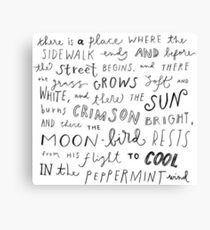 there is a place WHERE THE
SIDEWALK ends AND before
the STREET BEGINS. and THERE
the grass GROWS Soft and
WHITE, and there the SUN
burns CRIMSON BRIGHT,
AND there THE
MOON-bird RESTS
FROM HIS flight TO COOL
IN the PEPPERMINT wind